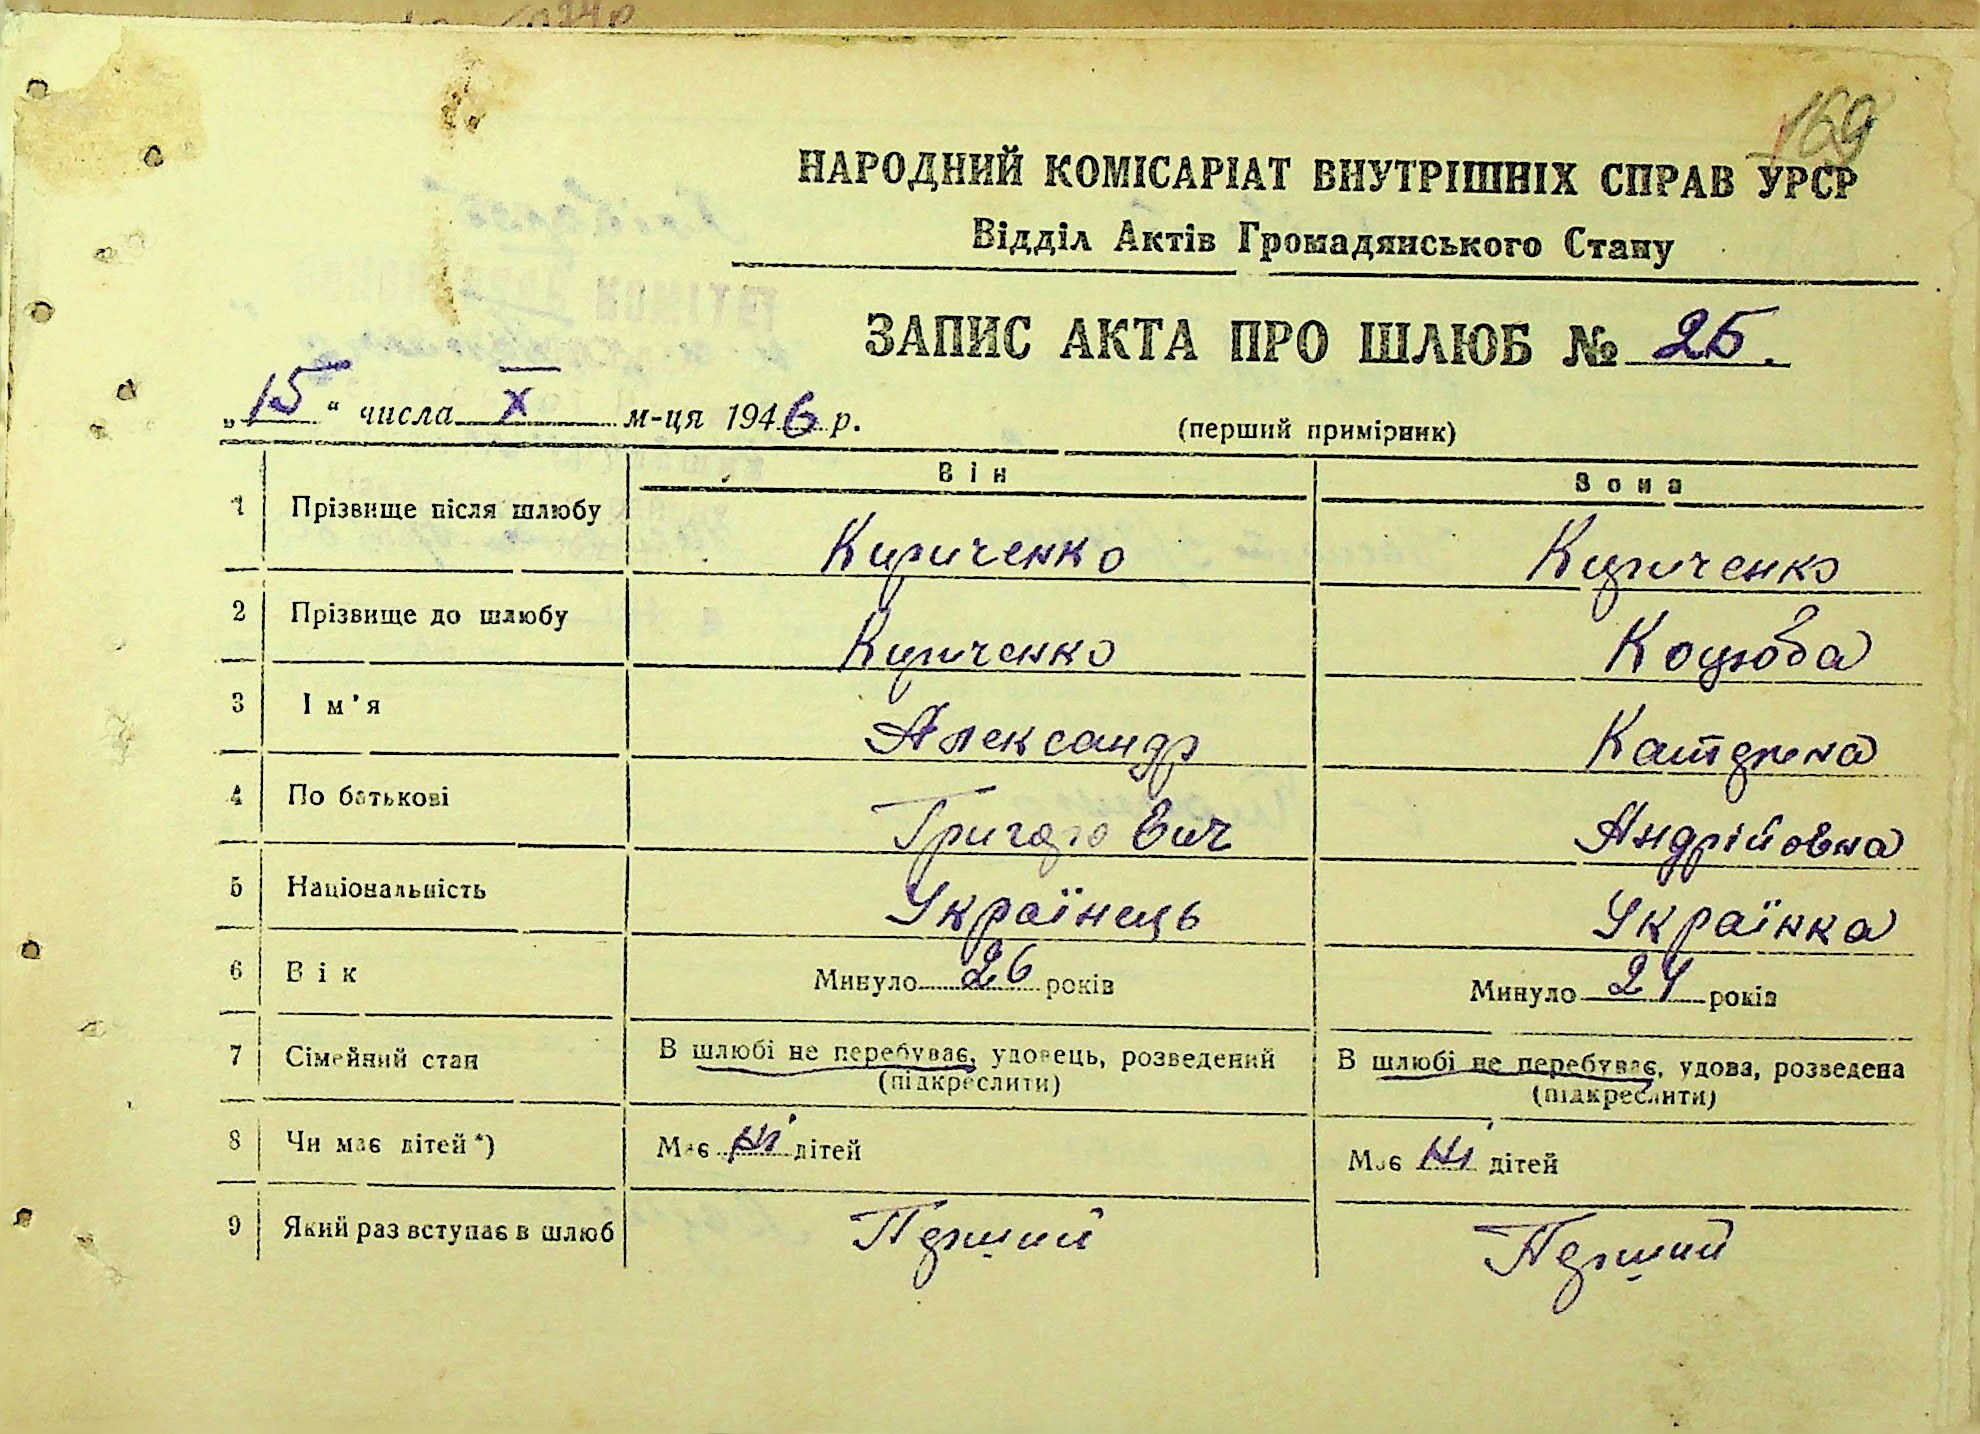 169
НАРОДНИЙ КОМІСАРІАТ ВНУТРІШНІХ СПРАВ УРСР
Відділ Актів Громадянського Стану
ЗАПИС АКТА ПРО ШЛЮБ № 25.
„15“ числа X м-ця 1946 р. (перший примірник)
Він Вона
1 Прізвище після шлюбу Кириченко Кириченко
2 Прізвище до шлюбу Кириченко Коцюба
3 Ім'я Александр Катерина
4 По батькові Григорович Андрійовна
5 Національність Українець Українка
6 Вік Минуло 26 років Минуло 24 років
7 Сімейний стан В шлюбі не перебуває, удовець, розведений В шлюбі не перебуває, удова, розведена
(підкреслити) (підкреслити)
8 Чи має дітей*) Має ні дітей Має ні дітей
9 Який раз вступає в шлюб Перший Перший